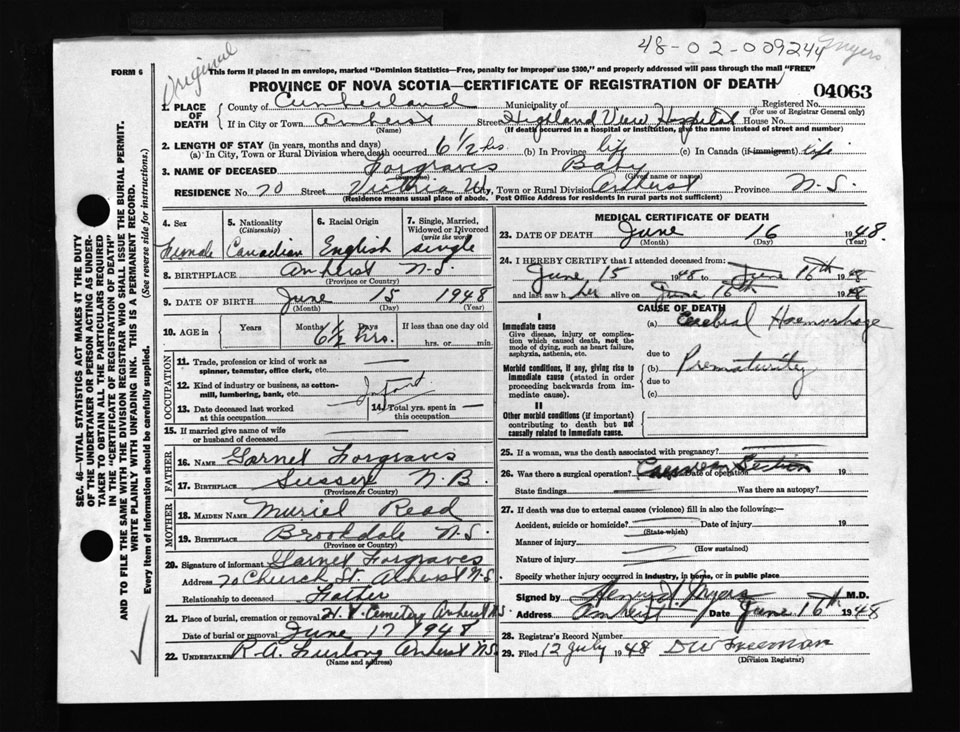 48-02-009244
Myers
Original
FORM 6
This form if placed in an envelope, marked "Dominion Statistics—Free, penalty for improper use $300," and properly addressed will pass through the mail "FREE"
PROVINCE OF NOVA SCOTIA—CERTIFICATE OF REGISTRATION OF DEATH
04063
1. PLACE OF DEATH
County of Cumberland Municipality of Registered No.
(For use of Registrar General only)
If in City or Town Amherst Street Highland View Hospital House No.
(Name) (If death occurred in a hospital or institution, give the name instead of street and number)
2. LENGTH OF STAY (in years, months and days)
(a) In City, Town or Rural Division where death occurred 6½ hrs. (b) In Province life (c) In Canada (if immigrant) life
3. NAME OF DECEASED Forgraves Baby
(Given name or names)
RESIDENCE No. 70 Street Victoria City, Town or Rural Division Amherst Province N.S.
(Residence means usual place of abode. Post Office Address for residents in rural parts not sufficient)
4. Sex
Female
5. Nationality
(Citizenship)
Canadian
6. Racial Origin
English
7. Single, Married, Widowed or Divorced
(write the word)
single
8. BIRTHPLACE Amherst N.S.
(Province or Country)
9. DATE OF BIRTH June 15 1948
(Month) (Day) (Year)
10. AGE in Years Months Days If less than one day
6½ hrs. hrs. or min.
OCCUPATION
11. Trade, profession or kind of work as spinner, teamster, office clerk, etc.
12. Kind of industry or business, as cotton-mill, lumbering, bank, etc. Infant
13. Date deceased last worked at this occupation
14. Total yrs. spent in this occupation
15. If married give name of wife or husband of deceased
FATHER
16. NAME Garnet Forgraves
17. BIRTHPLACE Sussex N.B.
(Province or Country)
MOTHER
18. MAIDEN NAME Muriel Read
19. BIRTHPLACE Brookdale N.S.
(Province or Country)
20. Signature of informant Garnet Forgraves
Address 70 Church St. Amherst N.S.
Relationship to deceased Father
21. Place of burial, cremation or removal H.V. Cemetery Amherst N.S.
Date of burial or removal June 17 1948
22. UNDERTAKER R.A. Furlong Amherst N.S.
(Name and address)
MEDICAL CERTIFICATE OF DEATH
23. DATE OF DEATH June 16 1948
(Month) (Day) (Year)
24. I HEREBY CERTIFY that I attended deceased from:
June 15 1948 to June 16th 1948
and last saw her alive on June 16th 1948
CAUSE OF DEATH
I
Immediate cause
Give disease, injury or complication which caused death, not the mode of dying, such as heart failure, asphyxia, asthenia, etc.
(a) Cerebral Haemorrhage
due to
Morbid conditions, if any, giving rise to immediate cause (stated in order proceeding backwards from immediate cause).
Prematurity
due to
(c)
II
Other morbid conditions (if important) contributing to death but not causally related to immediate cause.
25. If a woman, was the death associated with pregnancy?
26. Was there a surgical operation? Caesarean Section Date of operation 19
State findings Was there an autopsy?
27. If death was due to external causes (violence) fill in also the following:—
Accident, suicide or homicide? Date of injury 19
(State which)
Manner of injury
(How sustained)
Nature of injury
Specify whether injury occurred in industry, in home, or in public place
Signed by Henry J. Myers M.D.
Address Amherst Date June 16th 1948
28. Registrar's Record Number
29. Filed 12 July 1948 DW Freeman
(Division Registrar)
SEC. 46—VITAL STATISTICS ACT MAKES IT THE DUTY
OF THE UNDERTAKER OR PERSON ACTING AS UNDER-
TAKER TO OBTAIN ALL THE PARTICULARS REQUIRED
IN THE "CERTIFICATE OF REGISTRATION OF DEATH"
AND TO FILE THE SAME WITH THE DIVISION REGISTRAR WHO SHALL ISSUE THE BURIAL PERMIT.
WRITE PLAINLY WITH UNFADING INK. THIS IS A PERMANENT RECORD.
Every item of information should be carefully supplied. (See reverse side for instructions.)